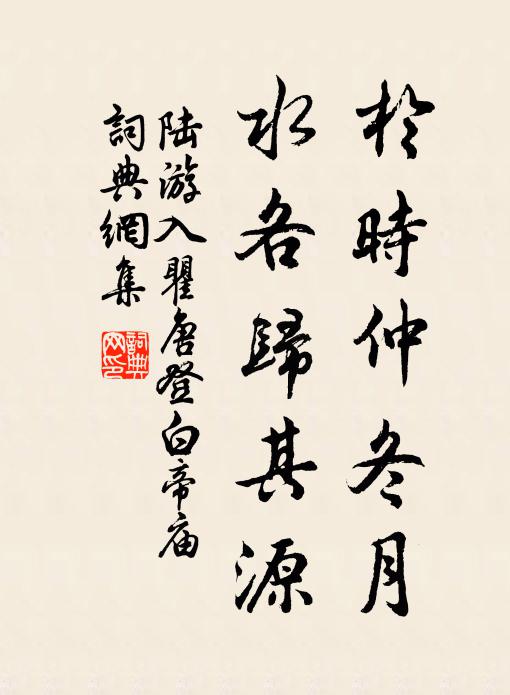 於時仲冬月
水各歸其源
陆游入瞿唐登白帝庙
詞典網集
詞典網印